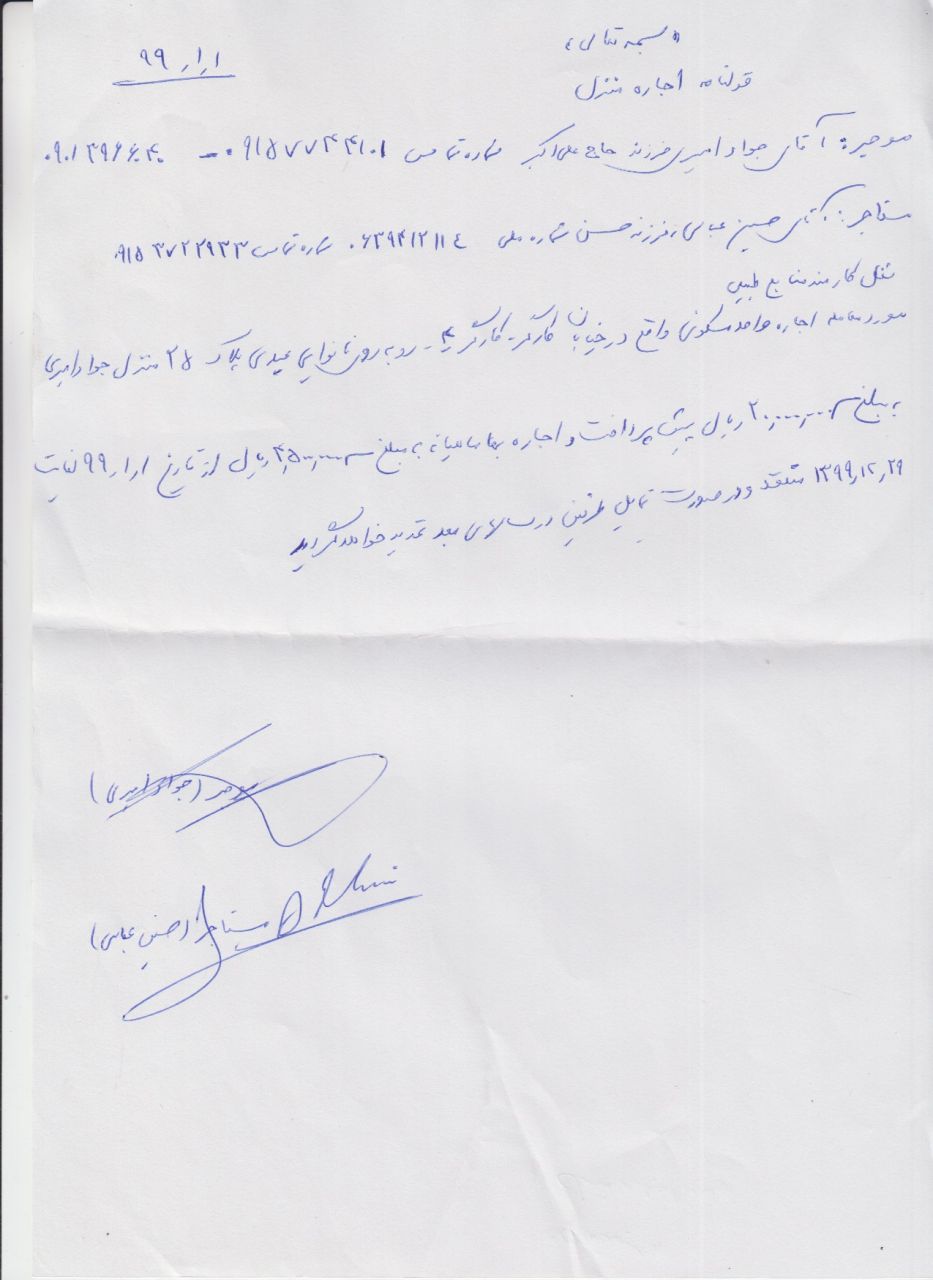 «بسمه تعالی»
۹۹٫۱٫۱
قولنامه اجاره منزل
موجر: آقای جواد امیری فرزند حاج علی اکبر شماره تماس ۰۹۱۵۷۷۴۴۱۰۱ - ۰۹۰۱۳۹۶۶۰۴۰
مستاجر: آقای حسین عباسی فرزند حسن شماره ملی ۰۶۳۹۴۱۲۱۱۴ شماره تماس ۰۹۱۵۳۷۲۲۹۳۳
شغل کارمند منابع طبیعی
مورد معامله اجاره واحد مسکونی واقع در خیابان کارگر - کارگر ۴ - روبه روی نانوایی عیدی پلاک ۲۵ منزل جواد امیری
به مبلغ ۲۰٫۰۰۰٫۰۰۰ ریال پیش پرداخت و اجاره بها ماهیانه به مبلغ ۴٫۵۰۰٫۰۰۰ ریال از تاریخ ۹۹٫۱٫۱ لغایت
۱۳۹۹٫۱۲٫۲۹ منعقد و در صورت تمایل طرفین در سالهای بعد تمدید خواهد گردید
موجر (جواد امیری)
مستاجر (حسین عباسی)